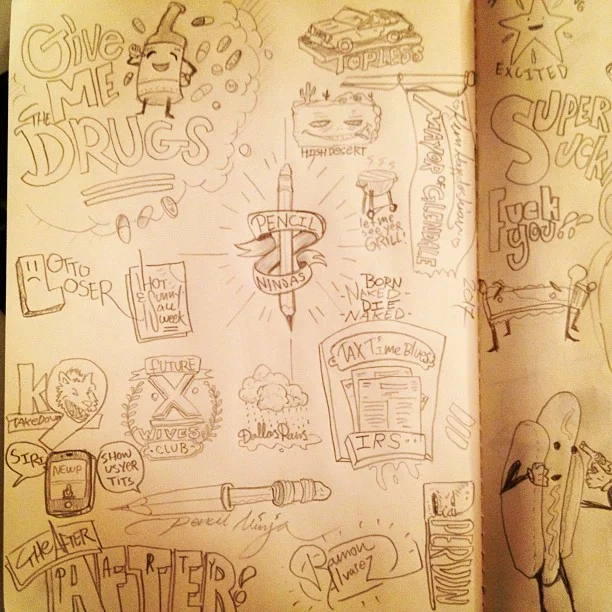 Give
ME
THE
DRUGS
TOPLESS
HIGH DESERT
let me
see yer
GRILL!
MAYOR OF GLENDALE
EXCITED
SUPER
SUCK
Fuck
you!!
PENCIL
NINJAS
OTTO
LOSER
HOT
& Sunny
all
week
BORN
NAKED
DIE
-NAKED-
TAX Time Blues
IRS
K
TAKEDOWN
FUTURE
X
WIVES
CLUB
Dallas Rains
SIRI
NEWP
SHOW
US YER
TITS
Pencil Ninja
THE AFTER
PARTY
AFTER!
Ramon
Alvarez
Local
PERVUN